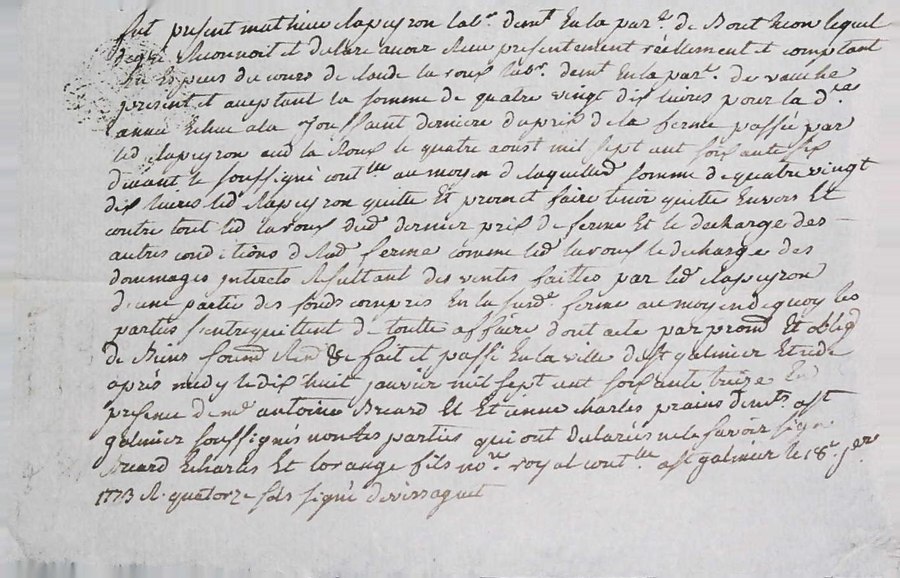 fut present mathieu clapeyron lab.r dem.t En la par.e de Bouthéon lequel
degré Reconnoit et declare avoir Reçu presentement réellement et comptant
En Especes du cours de claude la roux lab.r dem.t En la par.e de veauche
present et aceptant la somme de quatre vingt dix livres pour la d.re
année Echue a la Toussaint derniere du prix de la ferme passée par
led clapeyron aud la Roux le quatre aoust mil sept cent soixante six
devant le soussigné cont.lle au moyen de laquelled somme de quatre vingt
dix livres led clapeyron quitte Et promet faire tenir quitte Envers Et
contre tout led laroux dud dernier prix de ferme Et le decharge des
autres conditions de lad ferme comme led laroux le decharge des
dommages interets Resultant des ventes faittes par led clapeyron
d'une partie des fonds compris En la susd.e ferme au moyen de quoy les
parties s'entrequittent de toutte affaire dont acte par prom.d Et oblig
de Biens soumd Rend &c fait et passé En la ville de S.t galmier Etude
après midy le dix huit janvier mil sept cent soixante treize En
presence de m.e antoine Breard Et Etienne charles prains dem.ts a S.t
galmier soussignés non les parties qui ont declarées ne le savoir sign
Breard Echarles Et lorange fils no.re royal cont.lle a S.t galmier le 18.e j.er
1773 R. quatorze sols signé devissaguet